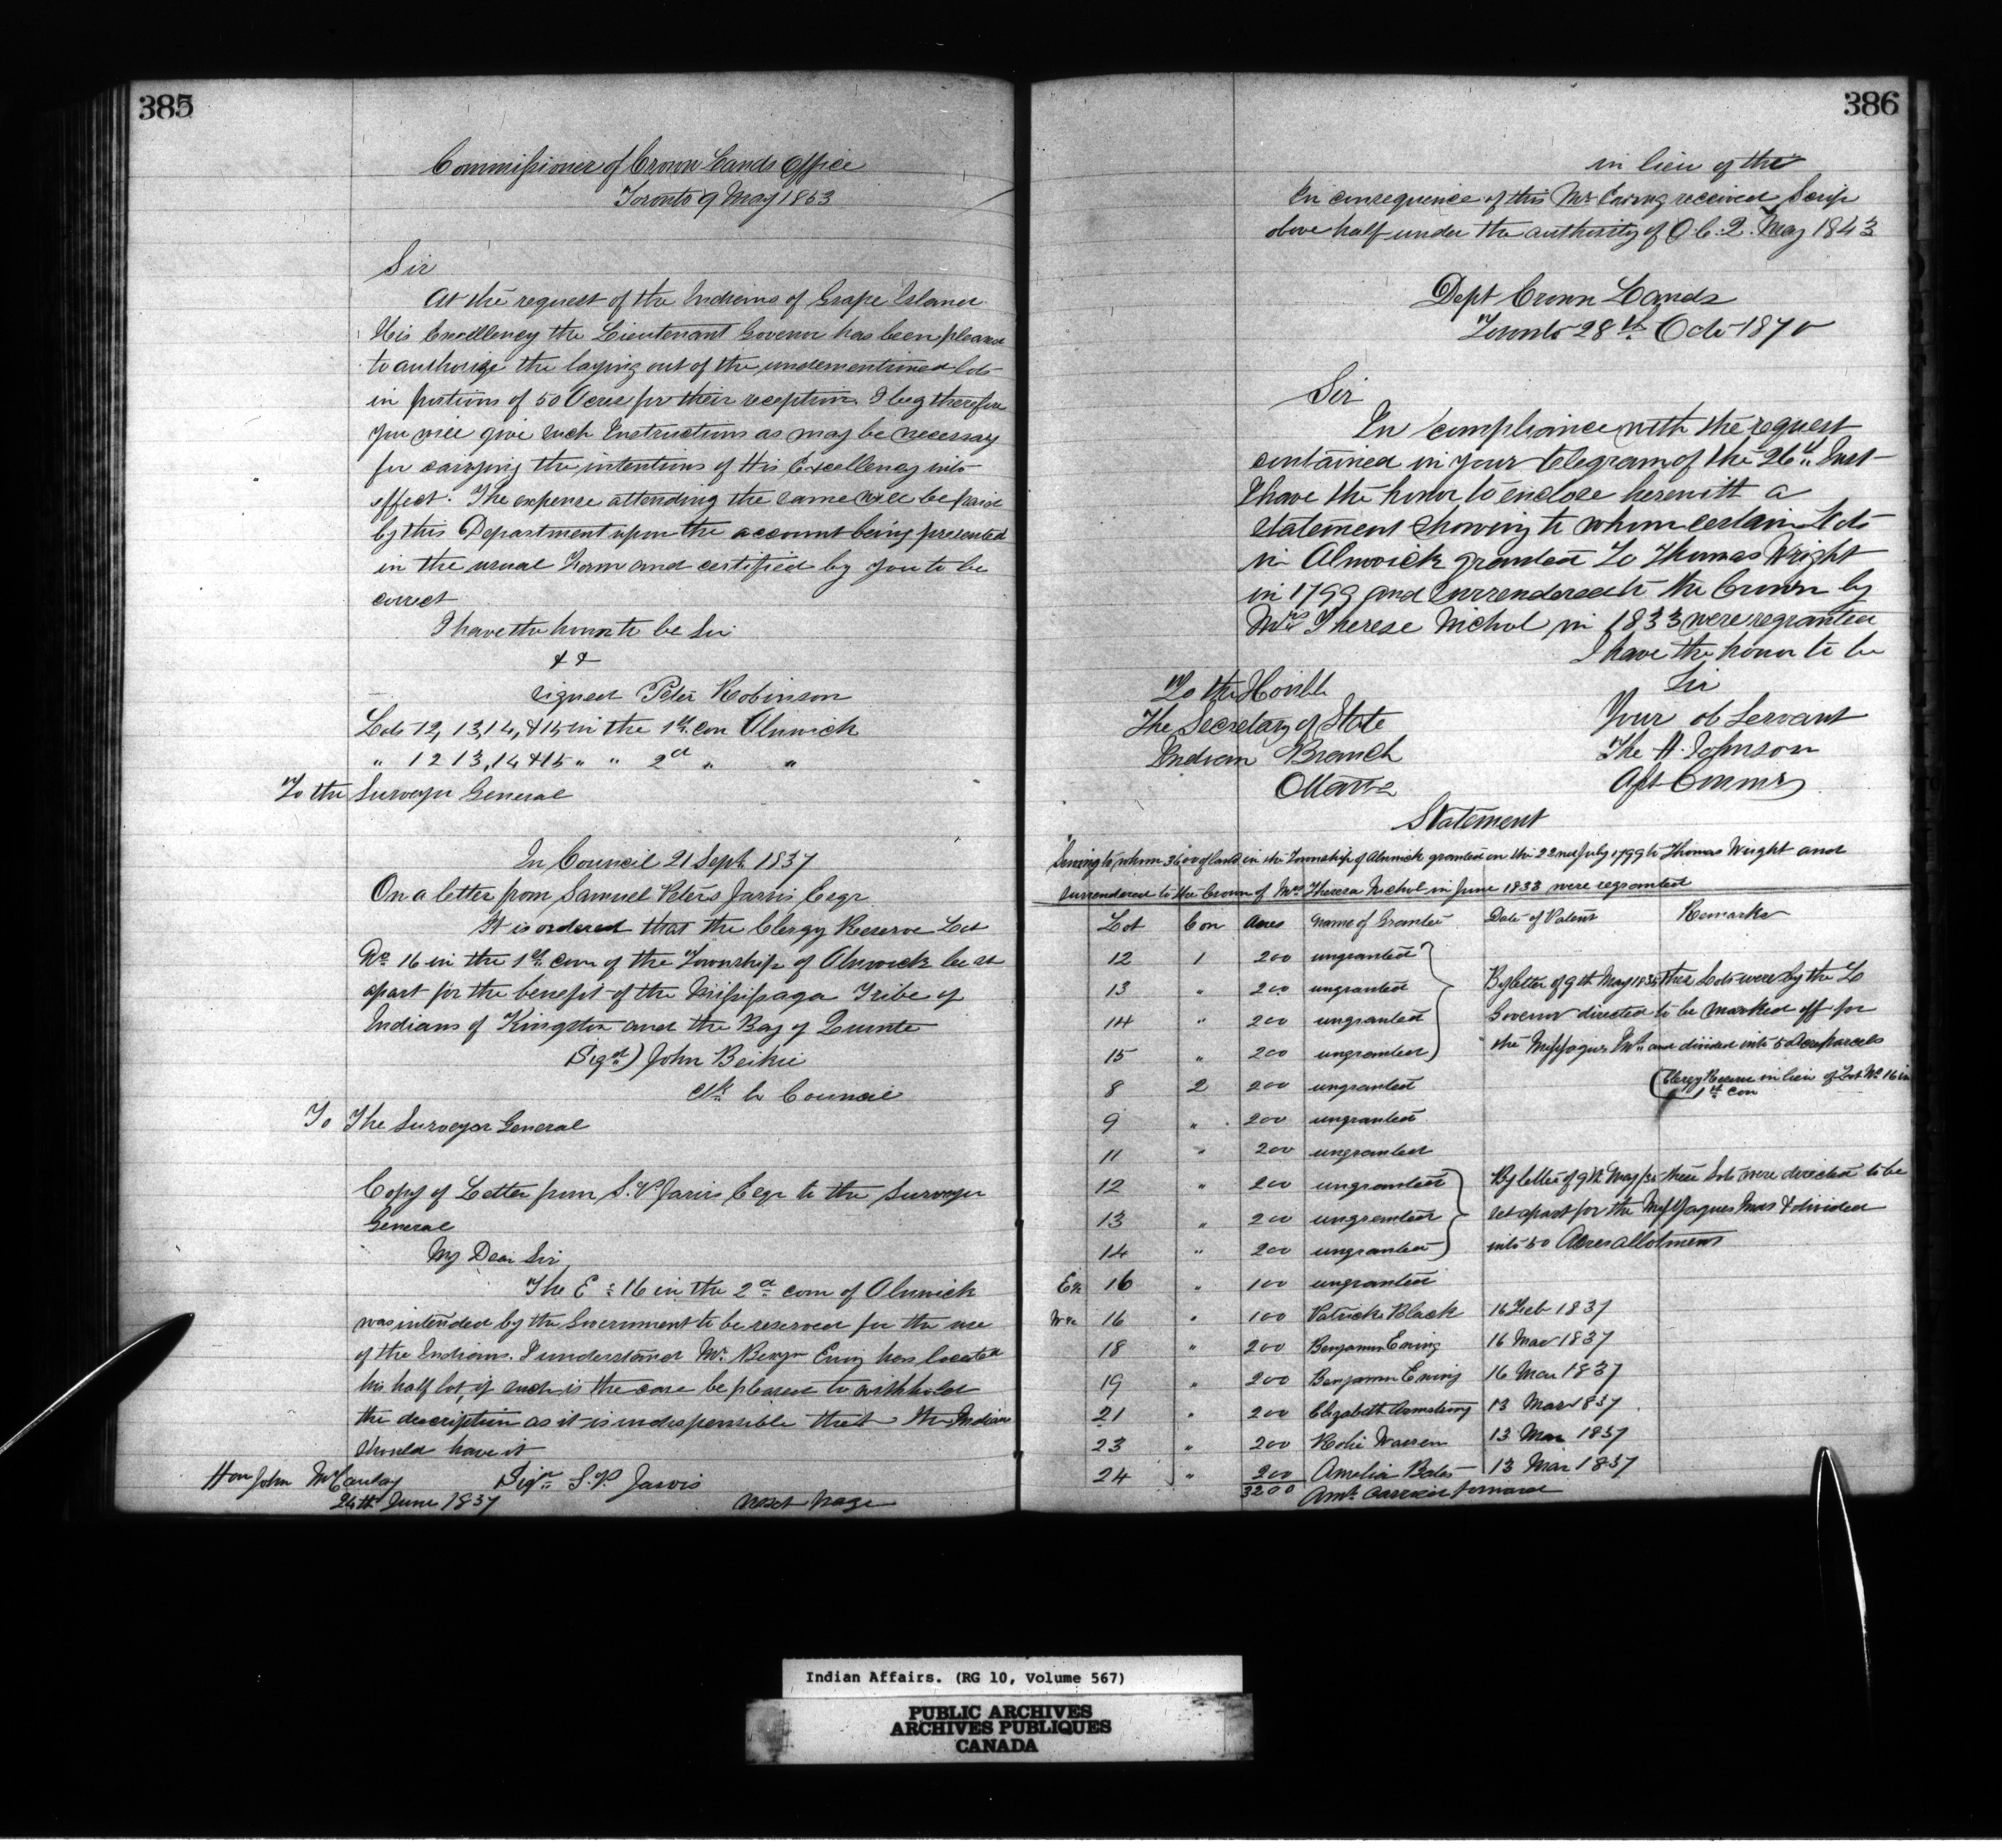 385
Commissioner of Crown Lands Office
Toronto 9 May 1853
Sir
At the request of the Indians of Grape Island
His Excellency the Lieutenant Governor has been pleased
to authorize the laying out of the undermentioned lots
in portions of 50 Acres for their reception. I beg therefore
you will give such Instructions as may be necessary
for carrying the intentions of His Excellency into
effect. The expense attending the same will be paid
by this Department upon the account being presented
in the usual Form and certified by you to be
correct
I have the honor to be Sir
& &
signed Peter Robinson
Lots 12, 13, 14, & 15 in the 1st con Alnwick
" 12 13, 14 & 15 " " 2d " "
To the Surveyor General
In Council 21 Sept 1837
On a letter from Samuel Peters Jarvis Esqr
It is ordered that the Clergy Reserve Lot
No 16 in the 1st con of the Township of Alnwick be set
apart for the benefit of the Missisaga Tribe of
Indians of Kingston and the Bay of Quinte
Sigd) John Beikie
Clk Ex Council
To The Surveyor General
Copy of Letter from S. P. Jarvis Esqr to the Surveyor
General
My Dear Sir
The E ½ 16 in the 2d con of Alnwick
was intended by the Government to be reserved for the use
of the Indians. I understand Mr Benjn Ewing has located
his half lot, if such is the case be pleased to withhold
the description as it is indispensible that the Indians
should have it
Hon John McCaulay Sigd S. P. Jarvis
24th June 1837 next page
386
in lieu of the
In consequence of this Mr Ewing received Scrip
above half under the authority of O.C. 2. May 1843
Dept Crown Lands
Toronto 28th Octo 1870
Sir
In compliance with the request
contained in your telegram of the 26th Inst
I have the honor to enclose herewith a
statement showing to whom certain Lots
in Alnwick granted to Thomas Wright
in 1799 and surrendered to the Crown by
Mrs Therese Nichol in 1833 were regranted
I have the honor to be
To the Honble Sir
The Secretary of State Your ob Servant
Indian Branch The H. Johnson
Ottawa Asst Commr
Statement
Shewing to whom 3600 of land in the Township of Alnwick granted on the 22nd July 1799 to Thomas Wright and
surrendered to the Crown of Mrs Theresa Nichol in June 1833 were regranted
Lot Con Acres Name of Grantee Date of Patent Remarks
12 1 200 ungranted
13 " 200 ungranted By letter of 9th May 1835 these Lots were by the Lt
14 " 200 ungranted Govenor directed to be marked off for
15 " 200 ungranted the Missaguas Inds and divided into 50 Acre parcels
8 2 200 ungranted (Clergy Reserve in lieu of Lot No 16 in
1st con
9 " 200 ungranted
11 " 200 ungranted
12 " 200 ungranted By letter of 9th May /35 these Lots were directed to be
13 " 200 ungranted set apart for the Missaguas Inds & divided
14 " 200 ungranted into 50 Acres allotment
E½ 16 " 100 ungranted
W½ 16 " 100 Patrick Black 16 Feb 1837
18 " 200 Benjamin Ewing 16 Mar 1837
19 " 200 Benjamin Ewing 16 Mar 1837
21 " 200 Elizabeth Armstrong 13 Mar 1837
23 " 200 Warren 13 Mar 1837
24 " 200 Amelia Bates 13 Mar 1837
3200 Amt carried forward
Indian Affairs. (RG 10, Volume 567)
PUBLIC ARCHIVES
ARCHIVES PUBLIQUES
CANADA